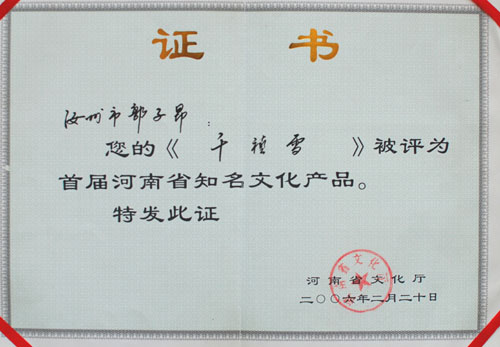 证 书
汝州市郭子昂：
您的《千种雪》被评为
首届河南省知名文化产品。
特发此证
河南省文化厅
二〇〇六年二月二十日